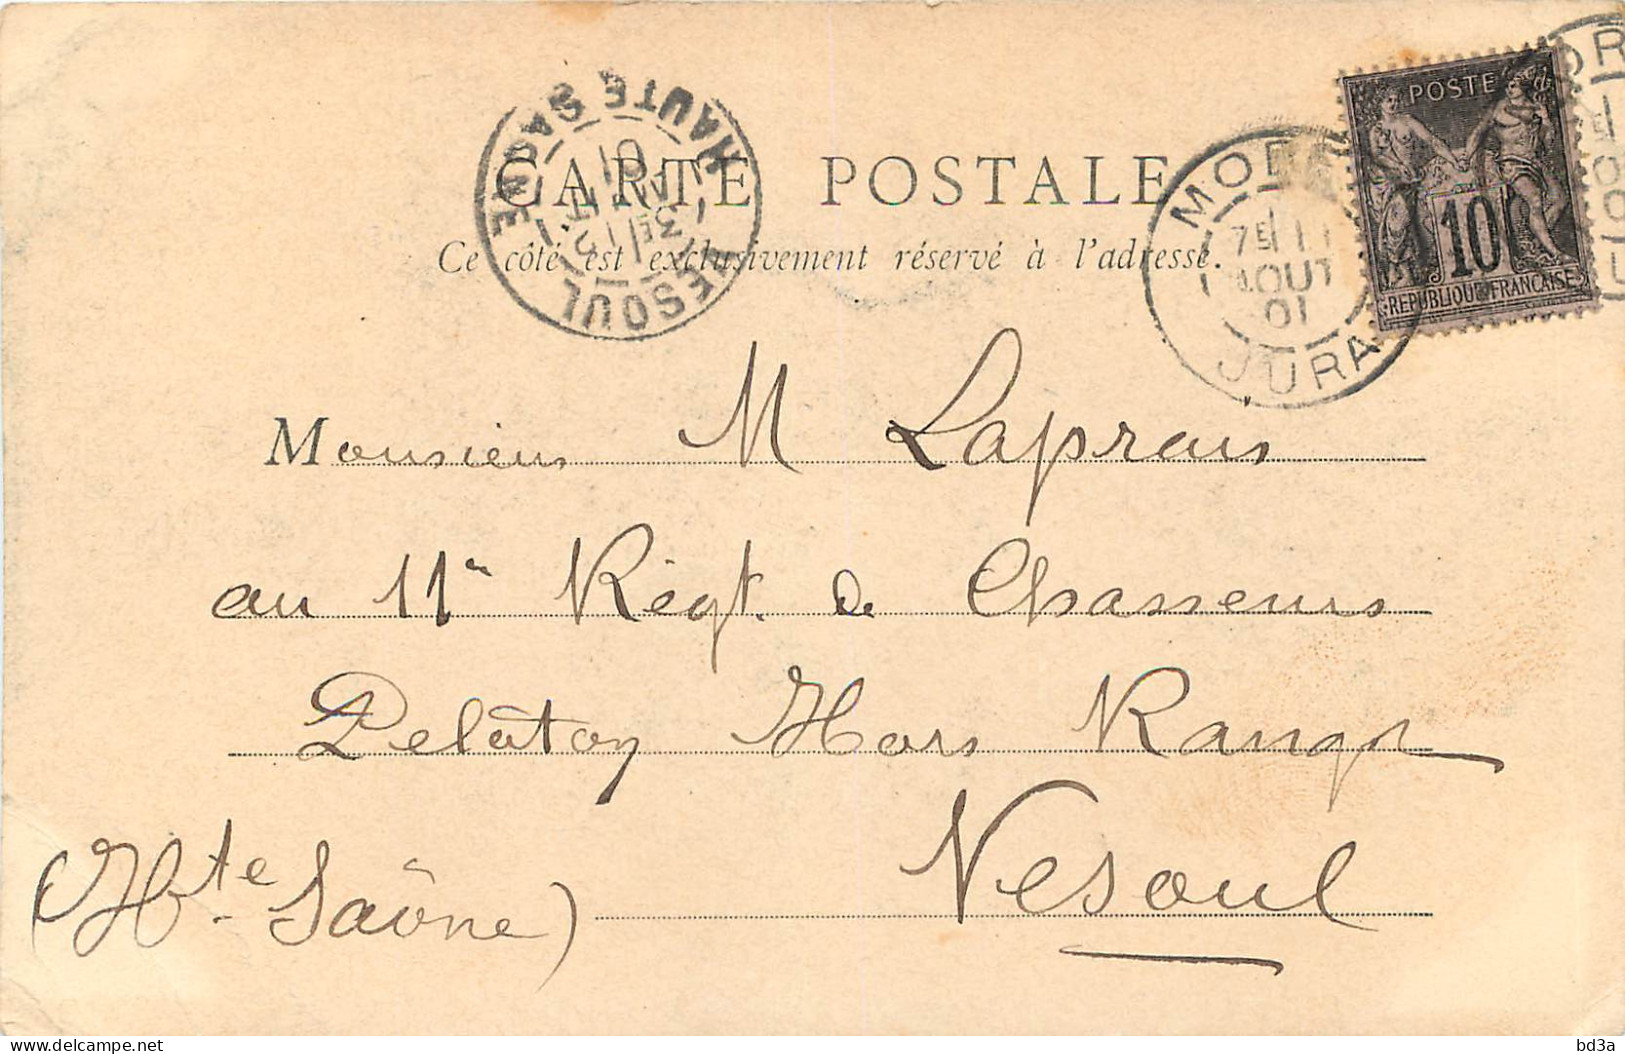 CARTE POSTALE
Ce côté est exclusivement réservé à l'adresse.
HAUTE SAONE
VESOUL
01
POSTE
10
REPUBLIQUE FRANÇAISE
7E 11
AOUT
01
JURA
Monsieur M Laprais
au 11e Régt. de Chasseurs
Peloton Hors Rang
Vesoul
(Hte Saône)
bd3a